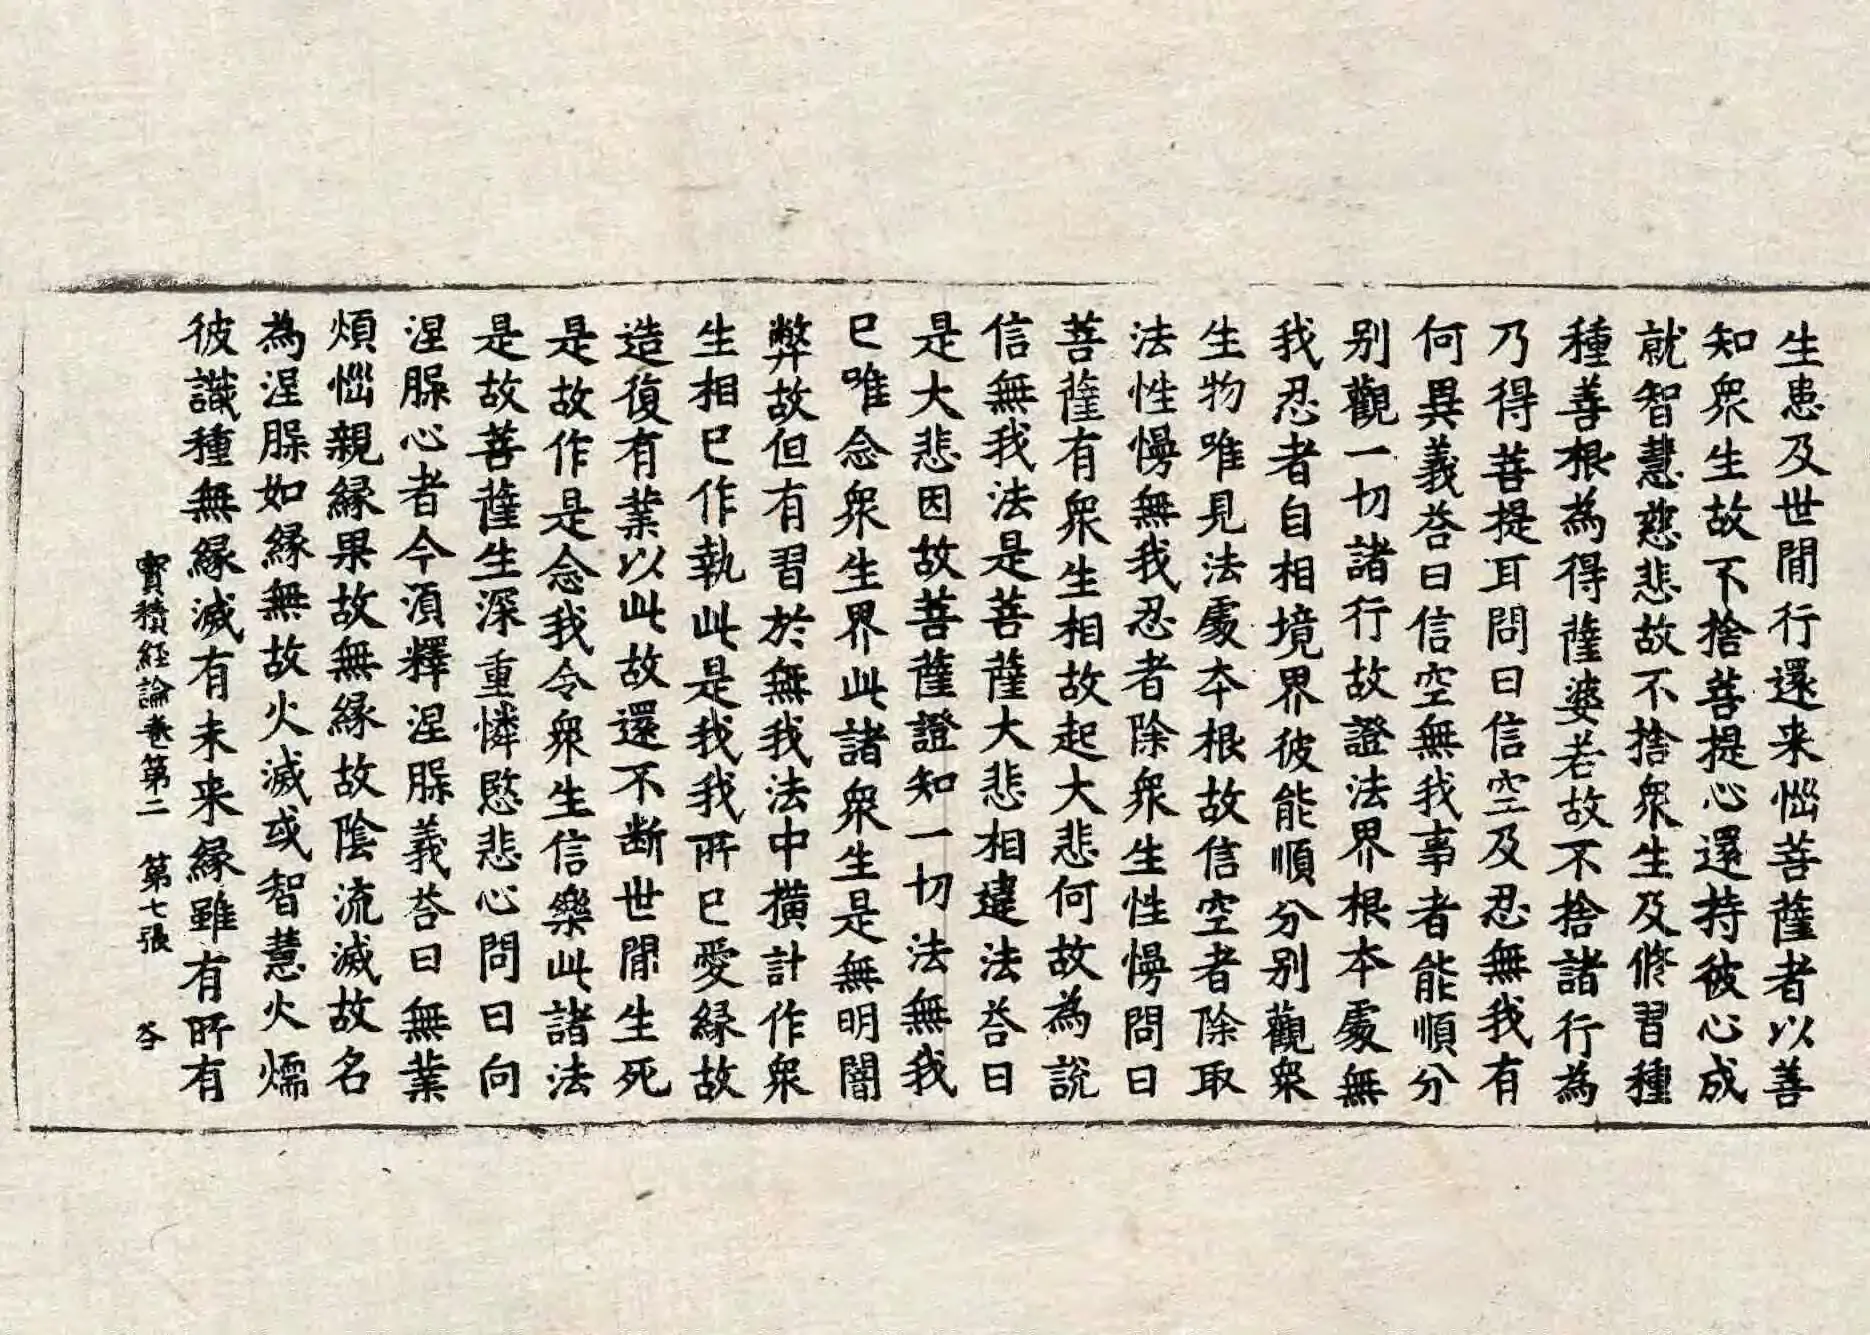 生患及世間行還来惱菩薩者以善
知衆生故不捨菩提心還持彼心成
就智慧慈悲故不捨衆生及修習種
種善根為得薩婆若故不捨諸行為
乃得菩提耳問曰信空及忍無我有
何異義荅曰信空無我事者能順分
别觀一切諸行故證法界根本處無
我忍者自相境界彼能順分别觀衆
生物唯見法處本根故信空者除取
法性慢無我忍者除衆生性慢問曰
菩薩有衆生相故起大悲何故為說
信無我法是菩薩大悲相違法荅曰
是大悲因故菩薩證知一切法無我
已唯念衆生界此諸衆生是無明闇
弊故但有習於無我法中横計作衆
生相已作執此是我我所已愛縁故
造復有業以此故還不断世間生死
是故作是念我令衆生信樂此諸法
是故菩薩生深重憐愍悲心問曰向
涅槃心者今須釋涅槃義荅曰無業
煩惱親縁果故無縁故陰流滅故名
為涅槃如縁無故火滅或智慧火燸
彼識種無縁滅有未来縁雖有所有
寳積經論卷第二　第七張　谷